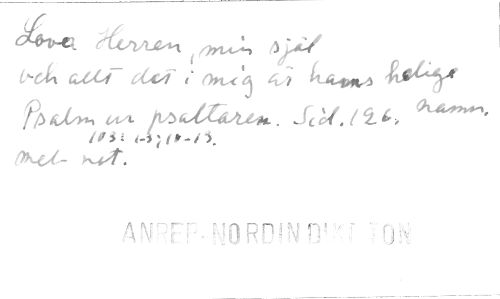 Lova Herren, min själ
och allt det i mig är hans helige
namn.
Psalm ur psaltaren. Sid. 126.
103: 1-3; 10-13.
mel- not.
ANREP-NORDIN DIKT TON